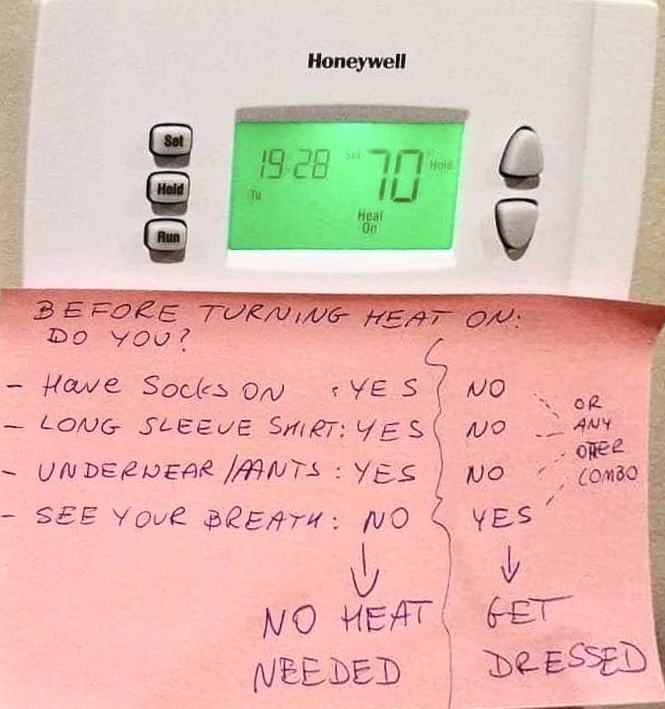 Honeywell
Set
Hold
Run
19:28 Set 70 Hold
Tu
Heat
On
BEFORE TURNING HEAT ON:
DO YOU?
- HAVE SOCKS ON : YES NO
- LONG SLEEVE SHIRT: YES NO
- UNDERWEAR/PANTS: YES NO
- SEE YOUR BREATH: NO YES
OR
ANY
OTHER
COMBO
NO HEAT
NEEDED
GET
DRESSED